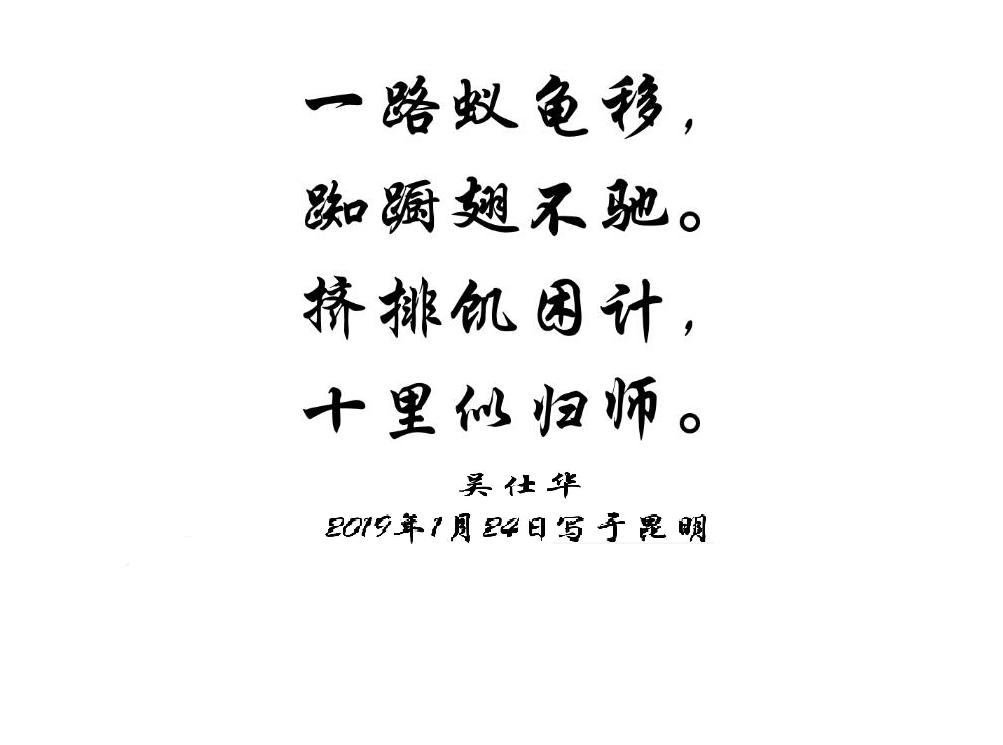 一路蚁龟移，
踟蹰翅不驰。
挤排饥困计，
十里似归师。
吴仕华
2019年1月24日写于昆明